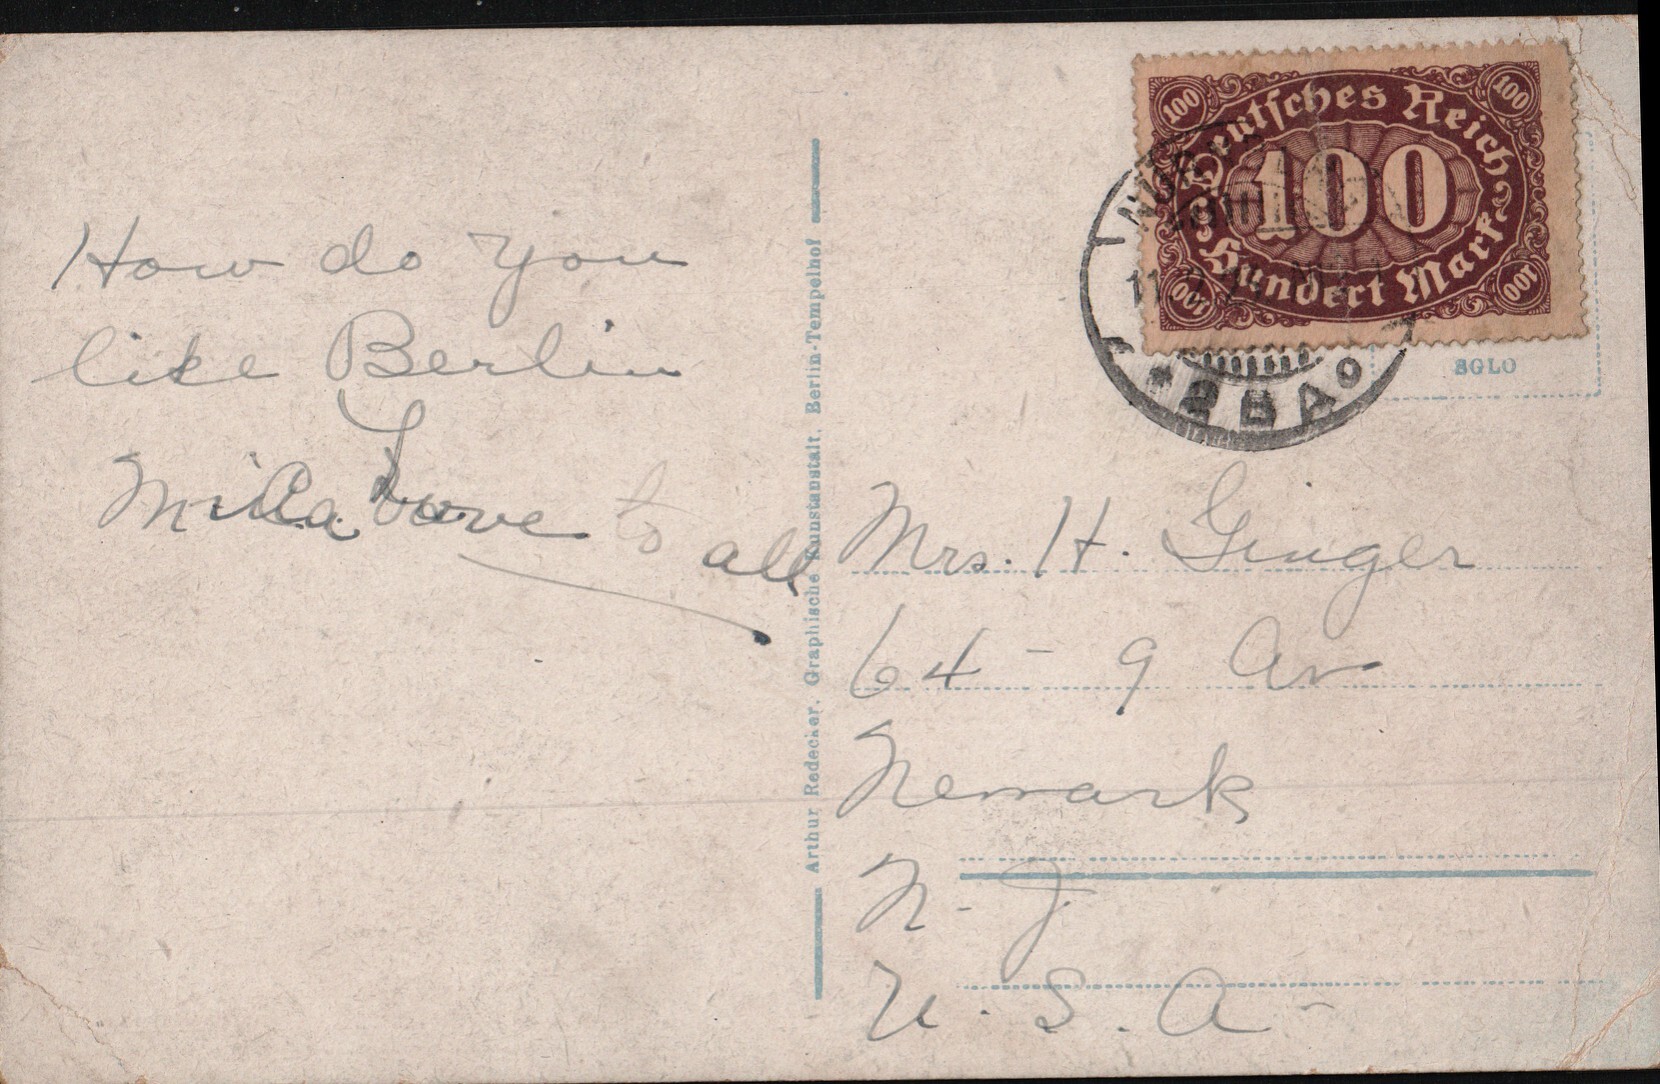 How do you
like Berlin
Love to all
Arthur Redecker, Graphische Kunstanstalt, Berlin-Tempelhof
Deutsches Reich
100 100
100
100 100
Hundert Mark
SGLO
Mrs. H. Ginger
64 - 9 Av
Newark
N. J
U. S. A -